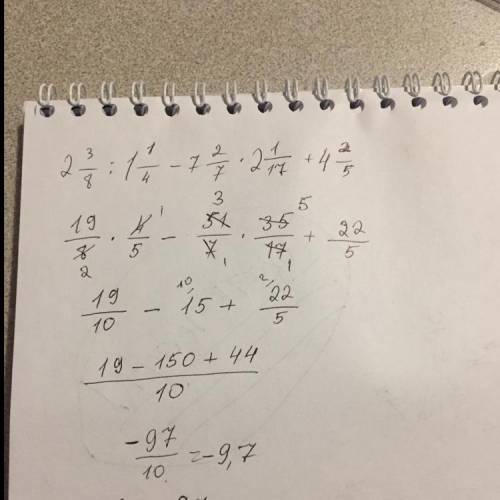 2 3/8 : 1 1/4 - 7 2/7 · 2 1/17 + 4 2/5
19/8 2 · 4/5 1 - 51/7 3 1 · 35/17 5 1 + 22/5
19/10 - 15 10 + 22/5 2
19 - 150 + 44 / 10
-97/10 = -9,7